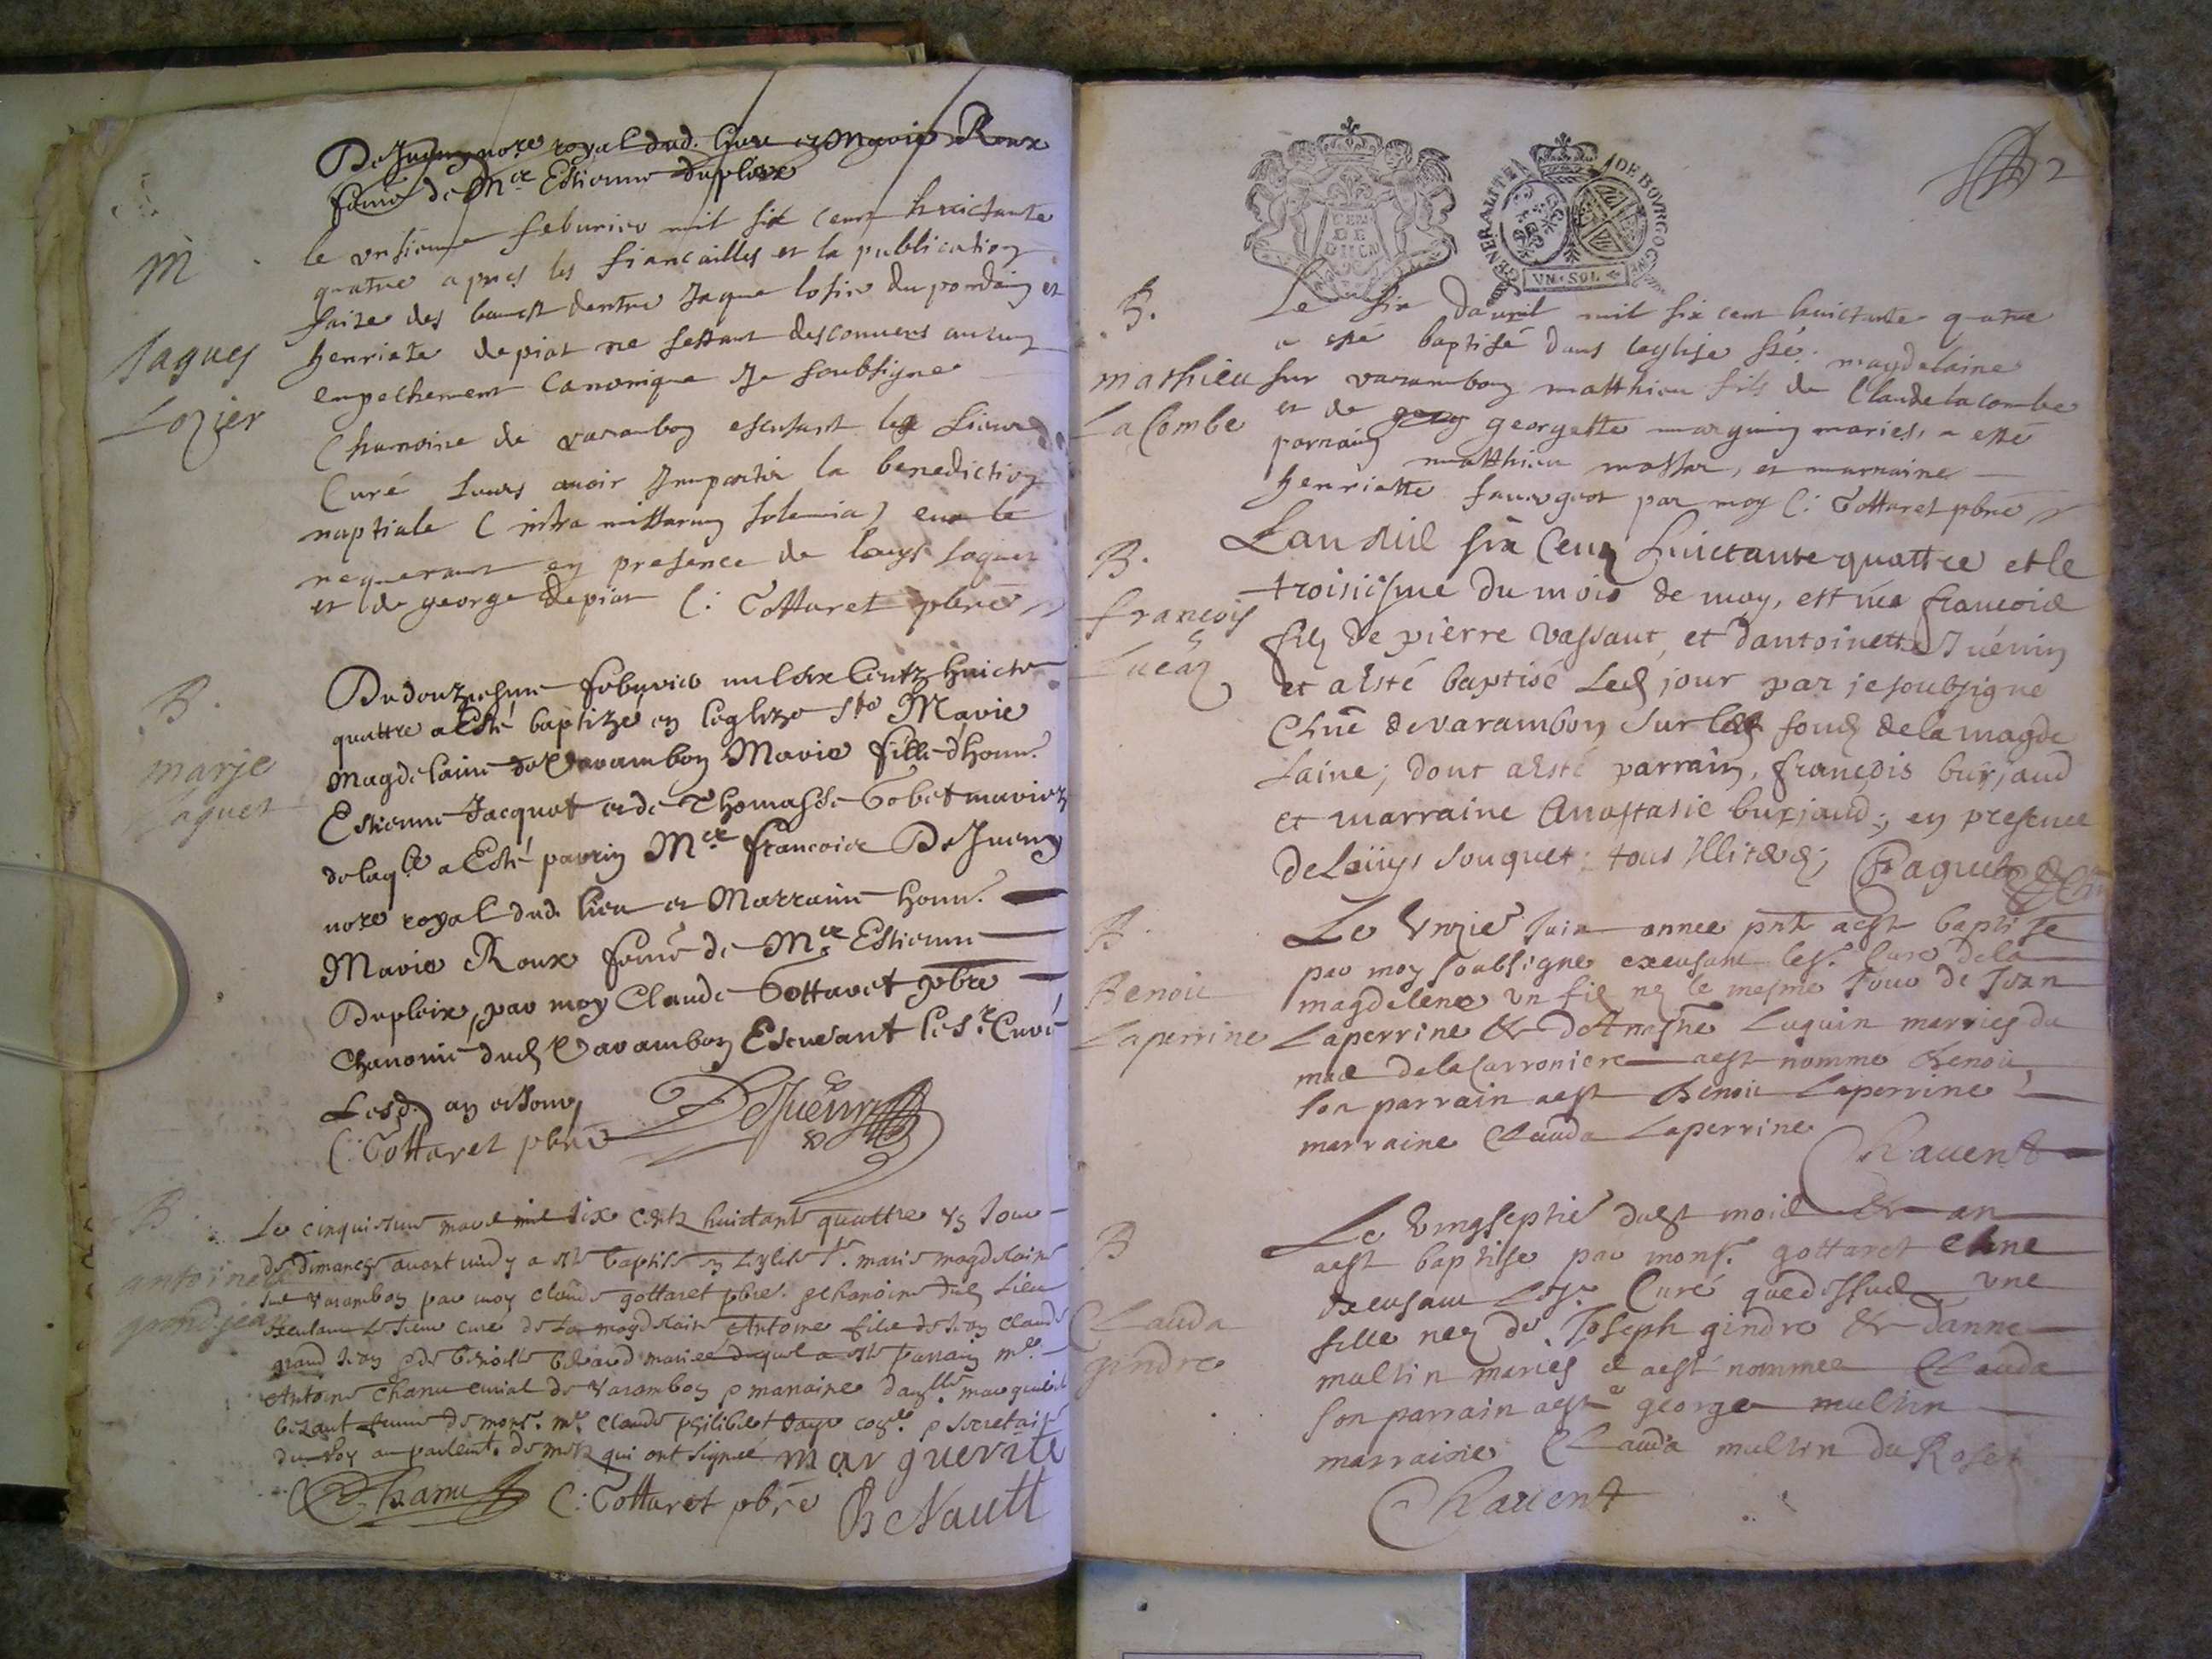 De Jueny no.re royal dud. lieu et Marie Roux
feme de Mre Estienne Duploix
M
Jaques
Lozier
le unsieme feburier mil six cent huictante
quatre apres les fiancailles et la publication
faite des bancst dentre Jaque losier du pondain et
henriate depiat ne sestant desconvers aucung
empechement Canonique Je soubsigne
Chanoine de varambon escusant les sieur
Curé Leurs avoir Imparti la benediction
naptiale (intra missarum solemnia) eux le
requerant en presence de Louys Joquet
et de george depiat C: Gottaret pbre
B.
marje
Jaquet
Du douziesme febvrier mil six Centz huicte
quattre a Esté baptizé en leglize Ste Marie
Magdelaine de Varambon Marie fille d'honn.
Estienne Jacquet et de Thomasse Gobet mariez
de laq.le a Esté parrin Mre Francois De Jueny
no.re royal dud. lieu et Marraine honn.
Marie Roux feme de Mre Estienne
Duploix, par moy Claude Gottaret pbre
Chanoine dud Varambon Escusant le Sr. Curé
Lesd. an et Jour
C: Gottaret pbre DeJueny
B.
antoine
grandjean
Le cinquiesme mars mil six centz huictante quattre et Jour
de dimanche avant midy a esté baptisé en Leglise Ste marie magdelaine
sur varambon par moy claude gottaret pbre. et chanoine dud Lieu
Excusant le sieur curé de la magdelaine Antoine filz de Jean Claude
grand Jean et de benoiste mariés duquel a esté parrain mre.
Antoine Chanu curial de varambon et maraine marguerite
femme de monsr. mre. Claude philibert et secretaire
du Roy au parlemt. de metz qui ont signé marguerite
Chanu C: Gottaret pbre ReNault
GENERALITE DE BOURGOGNE
VN·SOL
2
B.
mathieu
La Combe
Le six davril mil six cent huictante quatre
a esté baptisé dans leglise ste. magdelaine
sur varambon matthieu fils de Claude lacombe
et de georg georgette marguin mariés, a esté
parrain matthieu massar, et marraine
henriette favergeot par moy C: Gottaret pbre
B.
francois
Lueaz
Lan Mil six Cens huictante quattre et le
troisiesme du mois de may, est né francois
filz de pierre vassaut, et dantoinette Juénin
et a esté baptisé Led jour par je soubsigne
Chne de varambon sur les fonds de la magde
laine; dont a esté parrain, françois burjaud
et marraine Anastasie burjaud; en presence
de Loüys Jouquet: tous Illiteres; Paquet
B.
Benoit
Laperrine
Le Unzie Juin annee pnte aest baptise
par moy soubsigne excusant le s. Cure de la
magdelene un fil ne le mesme Jour de Jean
Laperrine & de Luguin marries du
mas de la Carroniere aest nomme Benoit,
son parrain aest Benoit Laperrine
marraine Clauda Laperrine
Chavent
B
Clauda
gindre
Le vingseptie dudt mois & an
aest baptise par monsr. gottaret chne
excusant le sr Curé que dessus une
fille nee de Joseph gindre & danne
multin mariés & aest nommee Clauda
son parrain aest george multin
marraine Clauda multin du Roset
Chavent